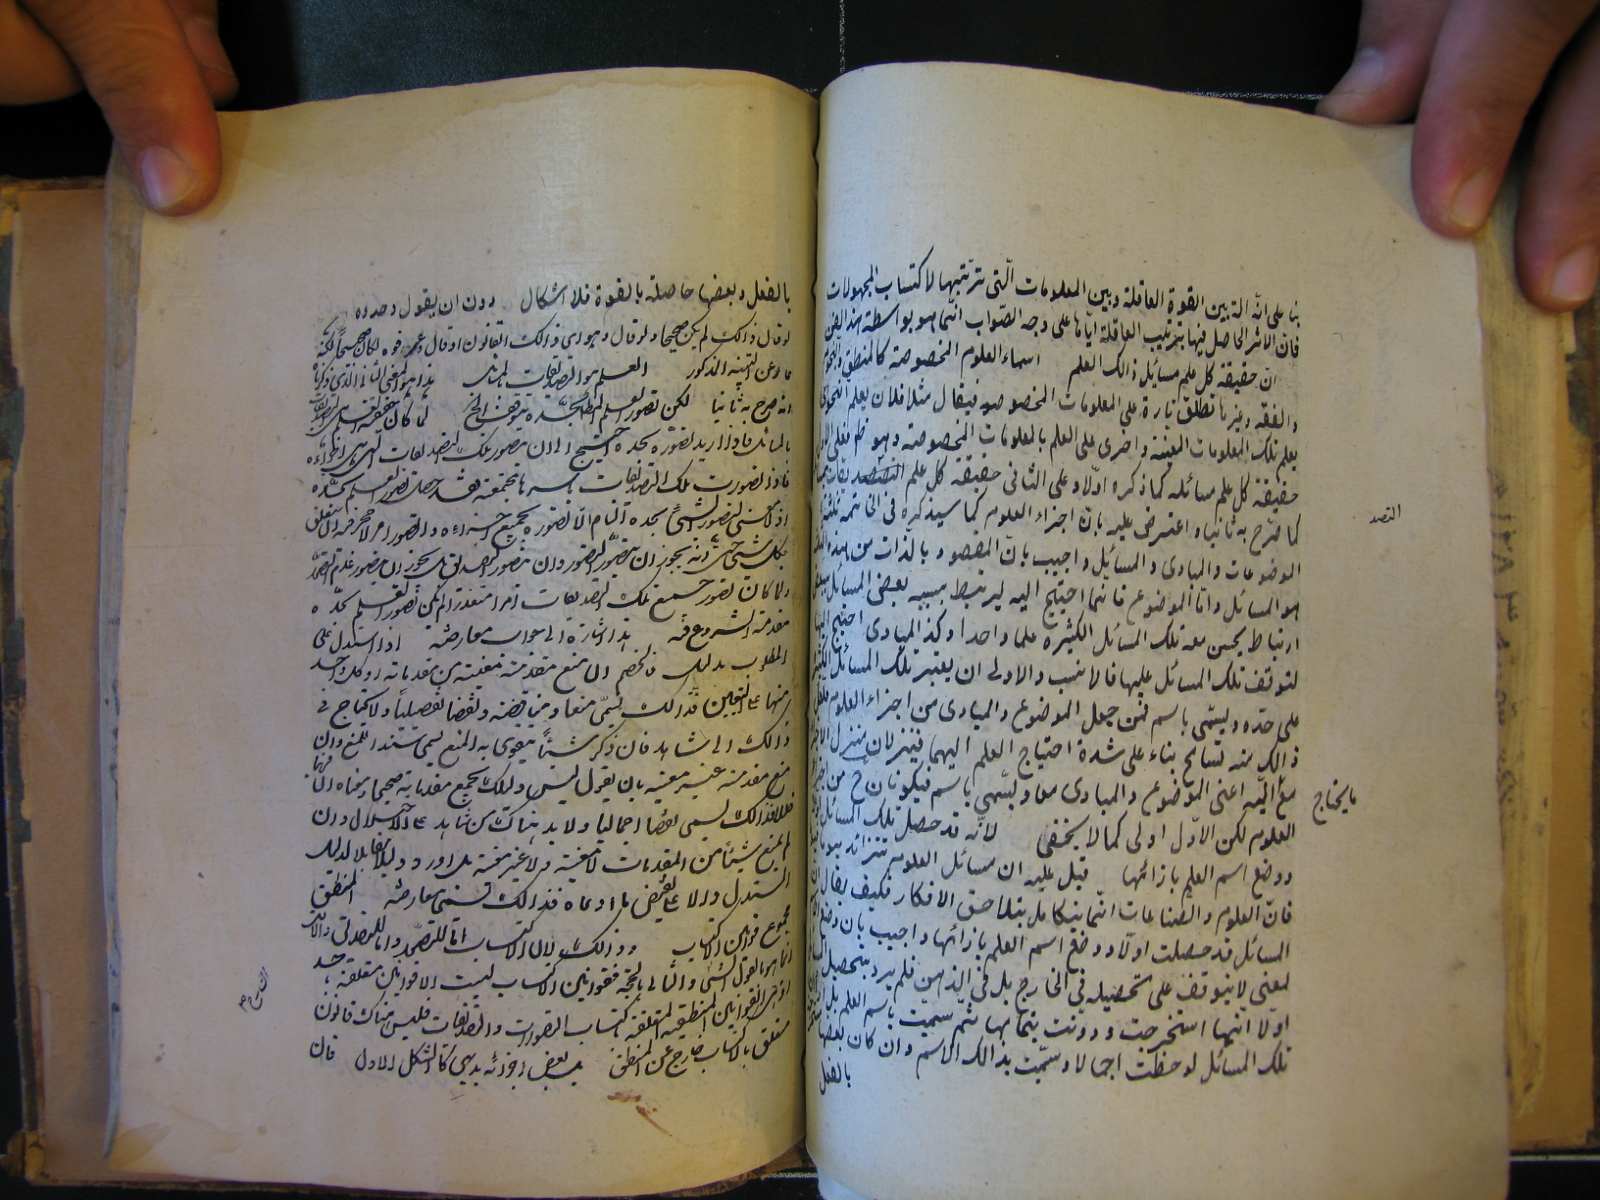 بنا على انّه آلة بين القوة العاقلة وبين المعلومات الّتى ترتّبها لاكتساب المجهولات
فان الاثر الحاصل فيها بترتيب العاقلة ايّاها على وجه الصّواب انّما هو بواسطة هذا الفن
انّ حقيقة كل علم مسائل ذالك العلم اسماء العلوم المخصوصة كالمنطق والنحو
والفقه وغيرها تطلق تارة على المعلومات المخصوصه فيقال مثلا فلان يعلم النحو اى
يعلم تلك المعلومات المعينة واخرى على العلم بالمعلومات المخصوصة وهو ظ فعلى الاول
حقيقة كل علم مسائله كما ذكره اوّلا وعلى الثانى حقيقة كل علم التصديقات بمسائله
كما صرّح به ثانيا واعترض عليه بانّ اجزاء العلوم كما سيذكره فى الخاتمه ثلثة
الموضوعات والمبادى والمسائل واجيب بانّ المقصود بالذات من هذه الثلثة
هو المسائل وامّا الموضوع فانّما احتيج اليه ليرتبط بسببه بعض المسائل ببعض
ارتباط يحسن معه تلك المسائل الكثيرة علما واحدا وكذ المبادى احتيج اليها
لتوقف تلك المسائل عليها فالانسب والاولى ان يعتبر تلك المسائل الكثيرة
على حدّه ويسمّى باسم فمن جعل الموضوع والمبادى من اجزاء العلوم فلعل
ذالك منه تسامح بناء على شدة احتياج العلم اليهما فينزلان منزل الاجزاء
ما يحتاج اليه اعنى الموضوع والمبادى معا ويسمّى باسم فيكونان ح من اجزاء
العلوم لكن الاوّل اولى كما لا يخفى لانّه قد حصل تلك المسائل اولا
ووضع اسم العلم بازائها قيل عليه ان مسائل العلوم تتزائد يوما
فانّ العلوم والصّناعات انّما يتكامل بتلاحق الافكار فكيف يقال ان
المسائل قد حصلت اولا ووضع اسم العلم بازائها واجيب بان وضع
لمعنى لا يتوقف على تحصيله فى الخارج بل فى الذهن فلم يرد بتحصيل
اولا انّها استخرجت ودوّنت بتمامها ثم سمّيت باسم العلم بل
تلك المسائل لوحظت اجمالا وسمّيت بذالك الاسم وان كان بعضها
بالفعل
التصد
ما يحتاج
بالفعل وبعضها حاصلة بالقوة فلا اشكال دون ان يقول وحدوه
لو قال ذالك لم يكن صحيحا ولو قال وهو اى ذالك القانون او قال عرفوه لكان صحيحا لكنه
عار عن التنبيه المذكور العلم هو التصديقات بالمسائل هذا هو المعنى الثانى الذى ذكرنا
انه صرح به ثانيا لكن تصور العلم المط بحده يتوقف الخ لما كان حقيقة كل علم التصديقات
بالمسائل فاذا اريد تصوره بحده احتيج الى ان يتصور تلك التصديقات التى هى اجزاؤه
فاذا تصورت تلك التصديقات باسرها مجتمعة فقد حصل تصور العلم بحدّه
اذ لا معنى لتصور الشئ بحده التام الّا تصوره بجميع اجزاءه والتصور امر لا حجر فيه اى يتعلق
بكل شئ حتى انه يجوز ان يتصوّر التصور وان يتصور التصديق بل يجوز ان يتصور عدم التصوّر
ولما كان تصور جميع تلك التصديقات امرا متعذرا لم يكن تصور العلم بحدّه
مقدمة الشروع فيه هذا اشارة الى جواب معارضة اذا استدل على
المطلوب بدليل فالخصم ان منع مقدمة معينة من مقدماته او كل واحد
منها على التعيين فذالك يسمّى منعا ومناقضة ونقضا تفصيليا ولا يحتاج فى
ذالك الى شاهد فان ذكر شيئا يتقوى به المنع يسمى سندا للمنع وان
منع مقدمة غير معينة بان يقول ليس دليلك بجميع مقدماته صحيحا ومعناه ان فيها
خللا فذالك يسمى نقضا اجماليا ولا بد هناك من شاهد على الاختلال وان
لم يمنع شيئا من المقدمات لا معينة ولا غير معينة بل اورد دليلا مقابلا لدليل
المستدل دالا على نقيض ما ادعاه فذالك يسمى معارضة المنطق
مجموع قوانين الاكتساب وذالك لان الاكتساب امّا للتصور وامّا للتصديق والاول
انما هو بالقول الشارح والثانى بالحجة فقوانين الاكتساب ليست الا قوانين متعلقة باحد
القوانين المنطقية المتعلقة باكتساب التصورات والتصديقات فليس هناك قانون
متعلق بالاكتساب خارج عن المنطق بعض اجزائه بديهى كالشكل الاول فان